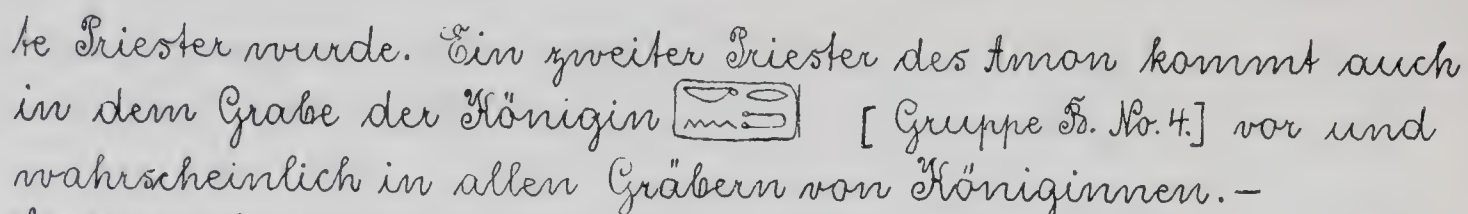 te Priester wurde. Ein zweiter Priester des Amon kommt auch
in dem Grabe der Königin [Gruppe B. No. 4.] vor und
wahrscheinlich in allen Gräbern von Königinnen. –